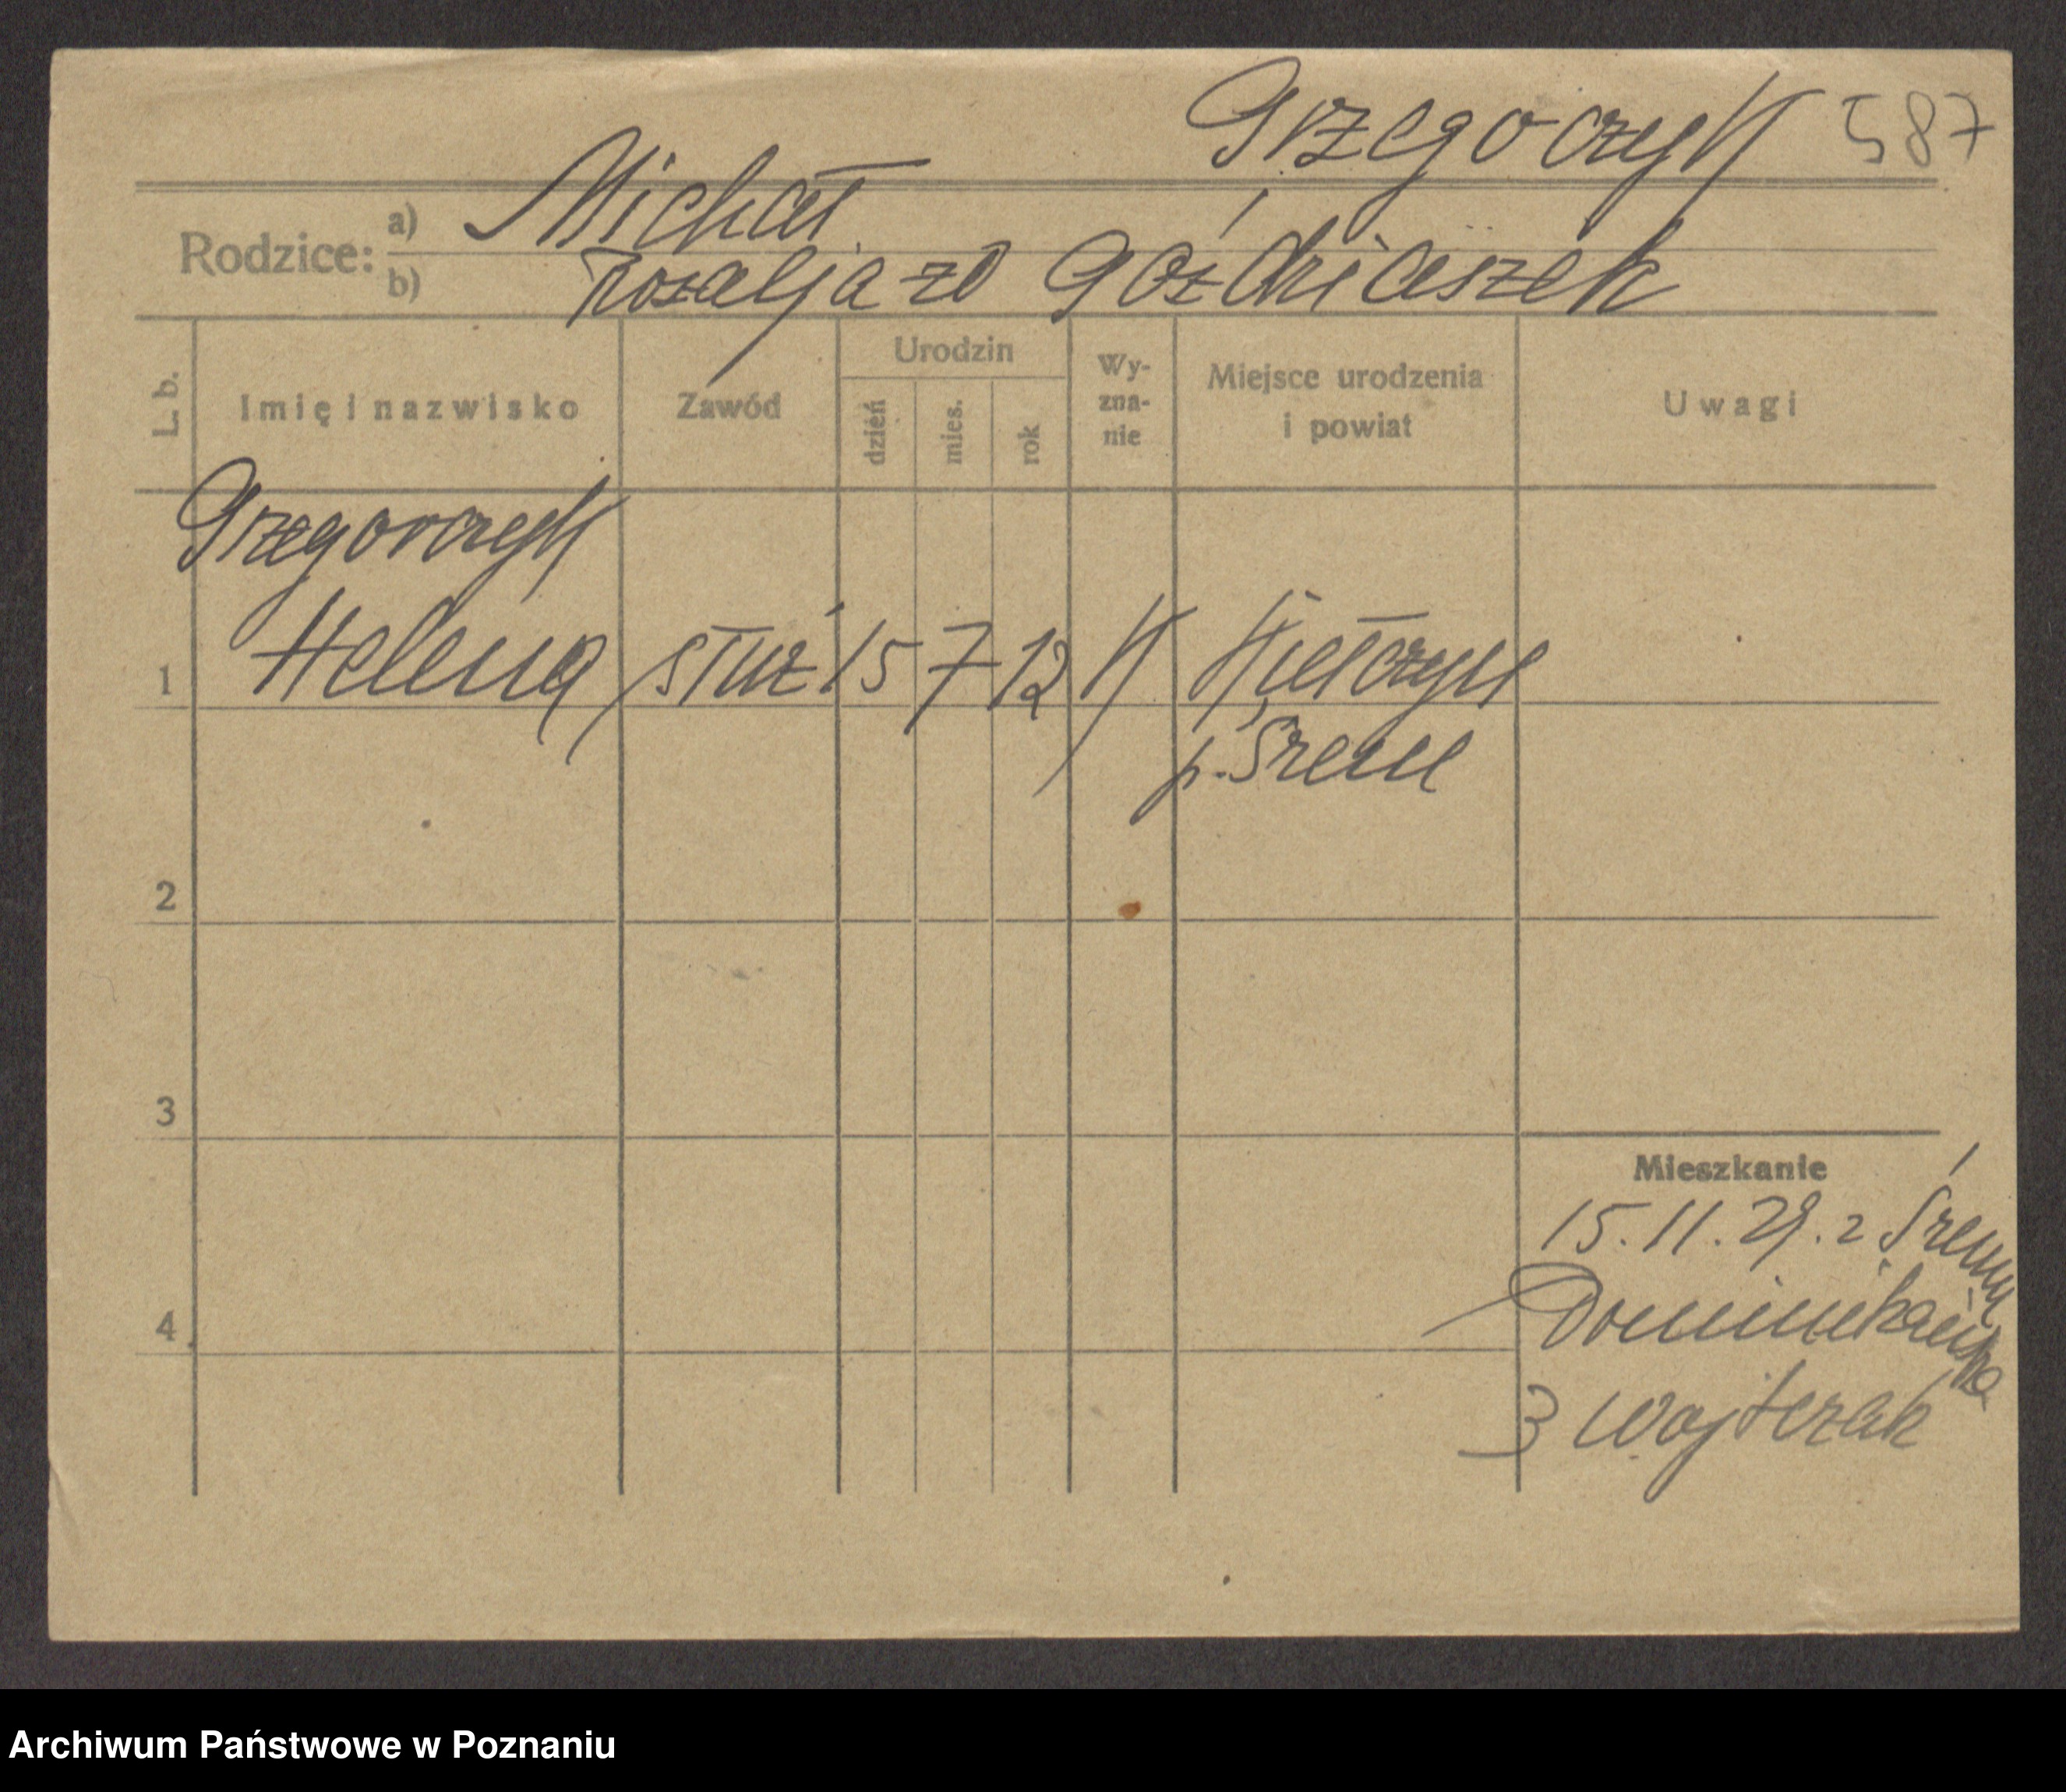 Grzegorczyk 587
Rodzice: a) Michał
b) Rozalja zd Goździaszek
L. b. Imię i nazwisko Zawód Urodzin dzień mies. rok Wy-zna-nie Miejsce urodzenia i powiat Uwagi
Grzegorczyk
1 Helena służ 15 7 12 K Kiełczyn
p. Śrem
2
3
Mieszkanie
15.11.29. z Śremu
Dominikańska
4
3 Wojtczak
Archiwum Państwowe w Poznaniu